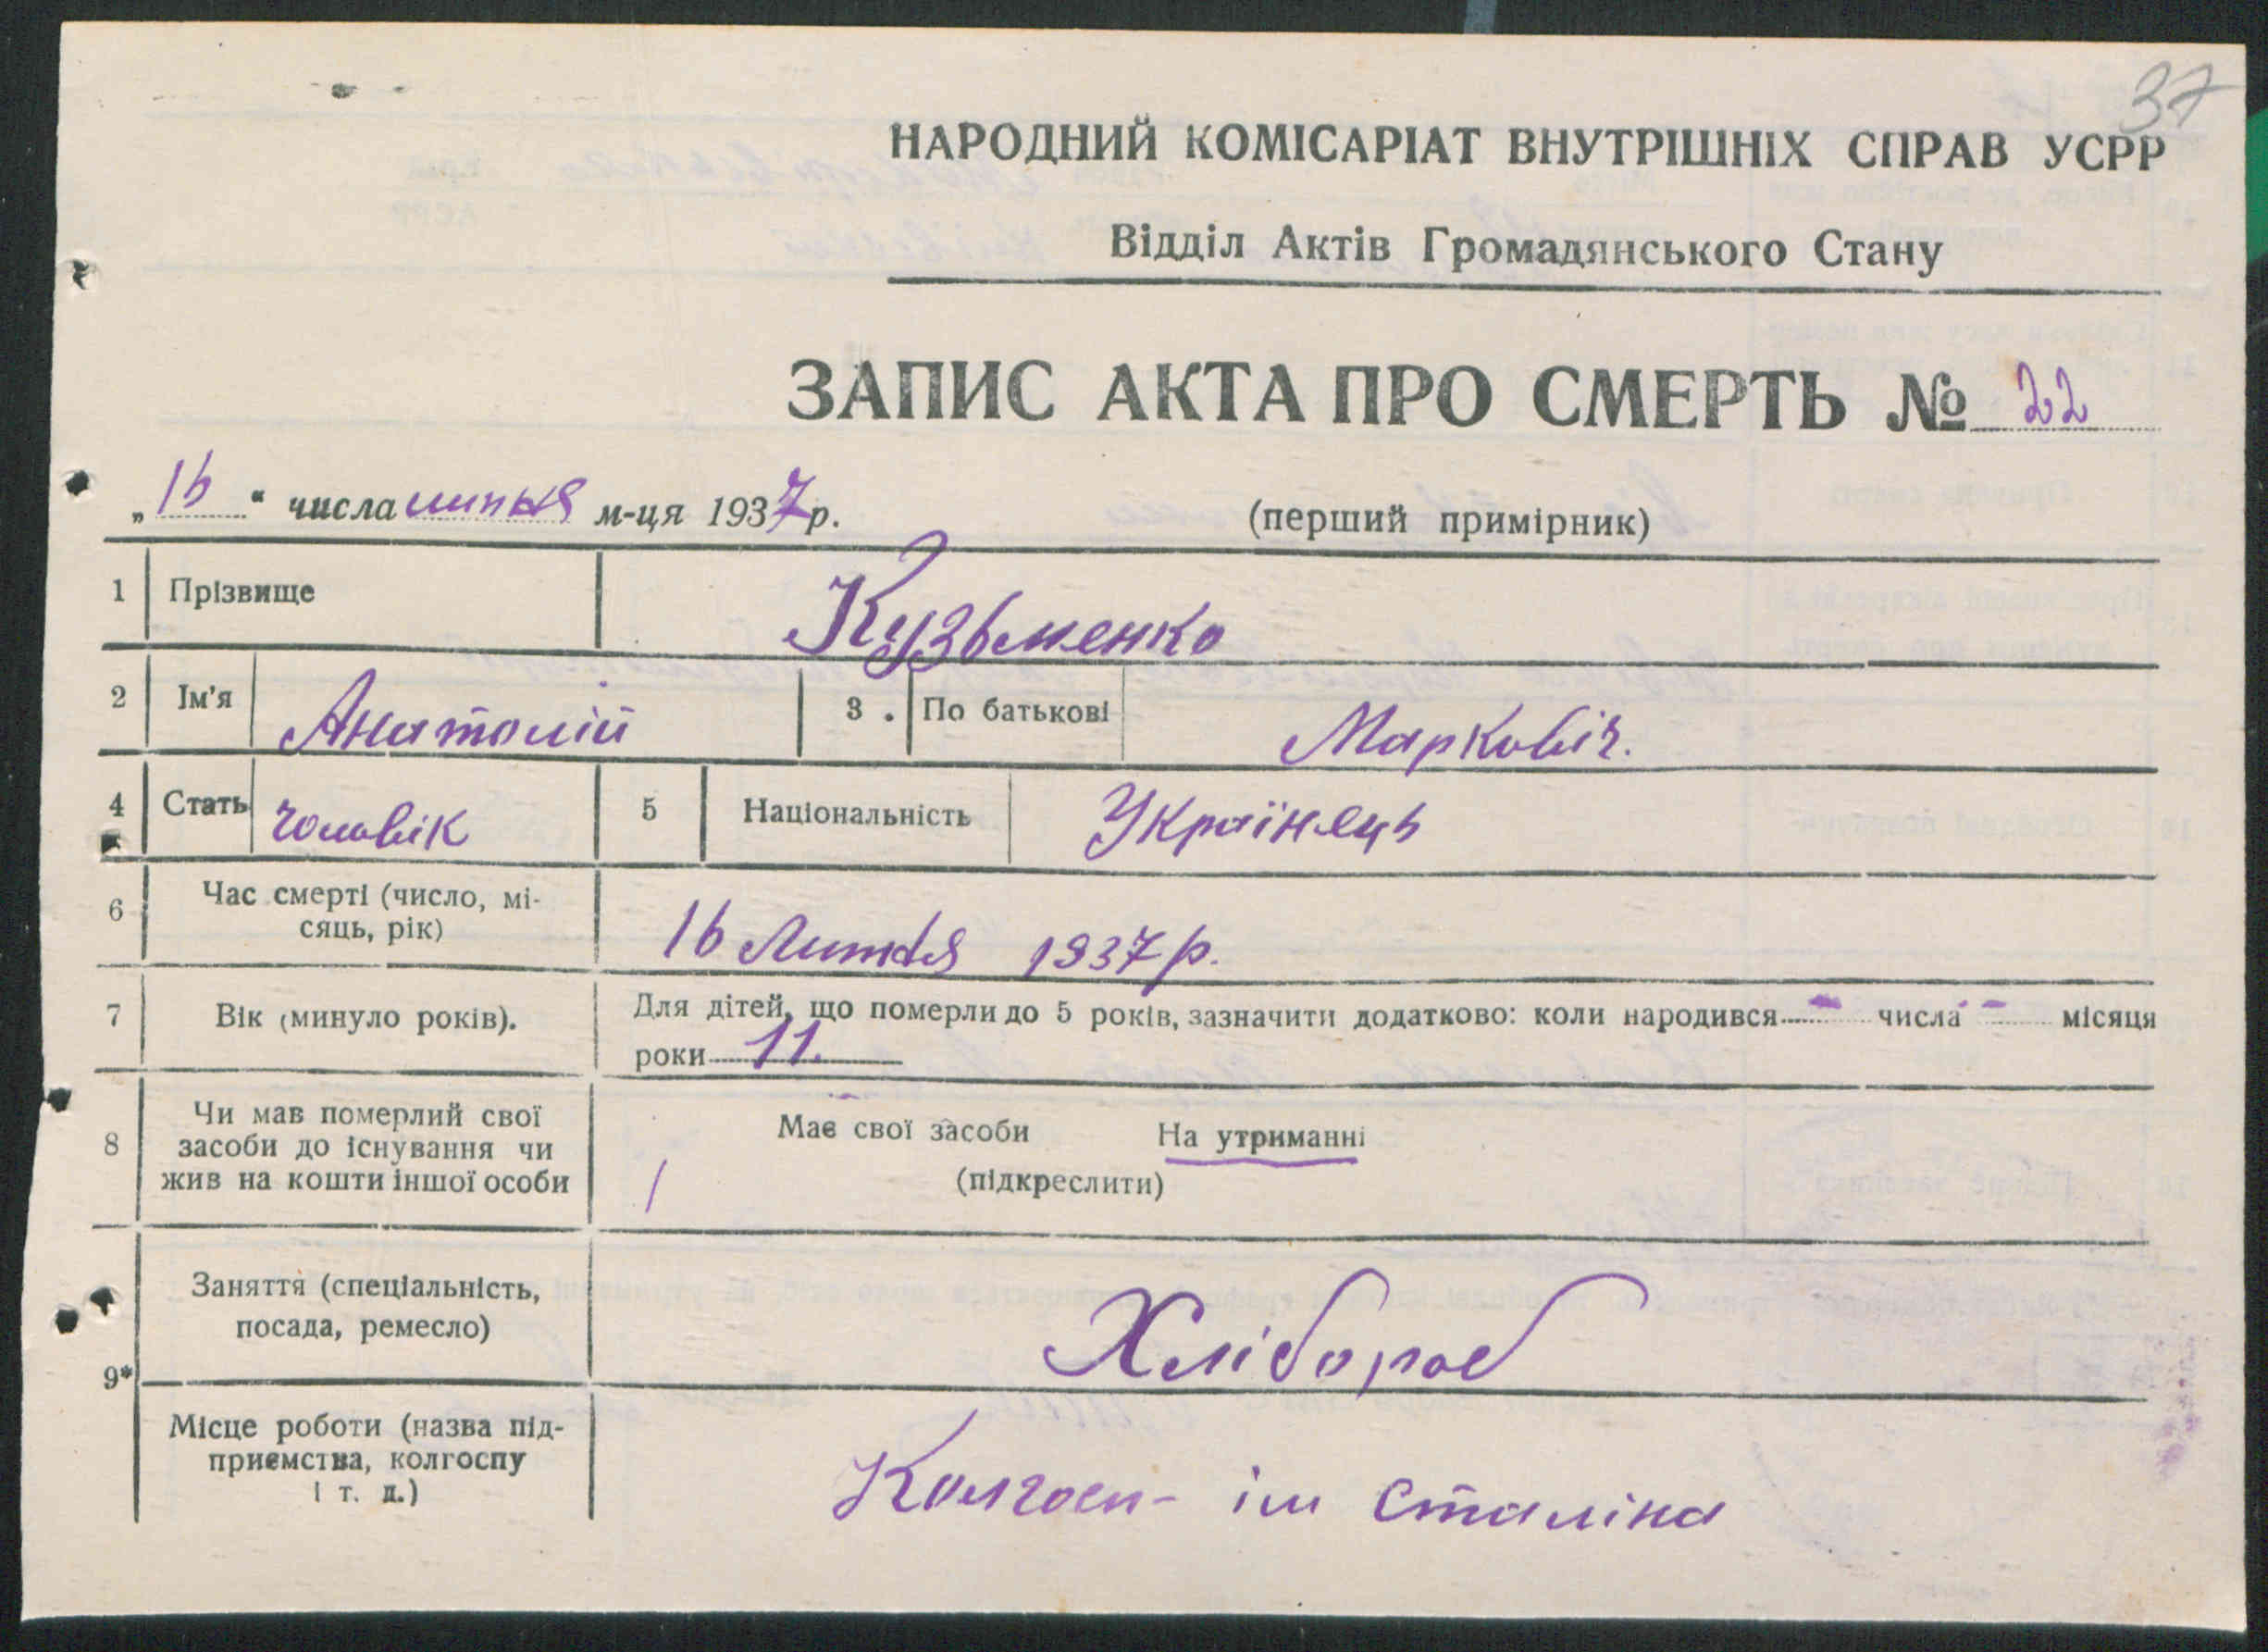 37
НАРОДНИЙ КОМІСАРІАТ ВНУТРІШНІХ СПРАВ УСРР
Відділ Актів Громадянського Стану
ЗАПИС АКТА ПРО СМЕРТЬ № 22
„16“ числа липня м-ця 1937р.
(перший примірник)
1 Прізвище Кузьменко
2 Ім'я Анатолій 3. По батькові Марковіч.
4 Стать чоловік 5 Національність Українець
6 Час смерті (число, мі-
сяць, рік) 16 Липня 1937 р.
7 Вік (минуло років). Для дітей, що померли до 5 років, зазначити додатково: коли народився - числа - місяця
роки 11.
8 Чи мав померлий свої
засоби до існування чи
жив на кошти іншої особи
Має свої засоби На утриманні
(підкреслити)
9* Заняття (спеціальність,
посада, ремесло) Хлібороб
Місце роботи (назва під-
приємства, колгоспу
і т. д.) Колгосп- ім Сталіна